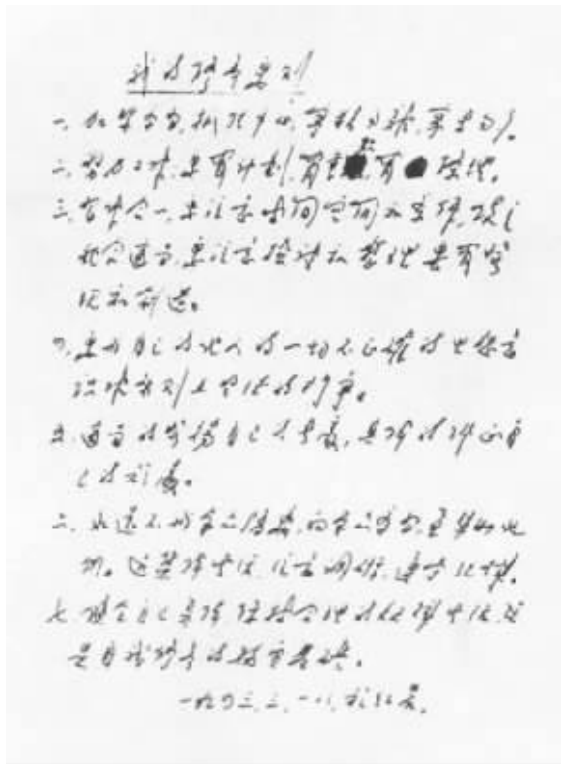 我的修养要则
一、加紧学习，抓住中心，宁精勿杂，宁专勿多。
二、努力工作，要有计划，有重点，有条理。
三、习作合一，要注意时间空间和条件，使之
配合适当，要注意检讨和整理，要有发
现和创造。
四、要与自己的他人的一切不正确的思想意
识作原则上坚决的斗争。
五、适当的发扬自己的长处，具体的纠正自
己的短处。
六、永远不与群众隔离，向群众学习，并帮助他
们。过集体生活，注意调研，遵守纪律。
七、健全自己身体，保持合理的规律生活，这
是自我修养的物质基础。
一九四三、三、一八，于红岩。